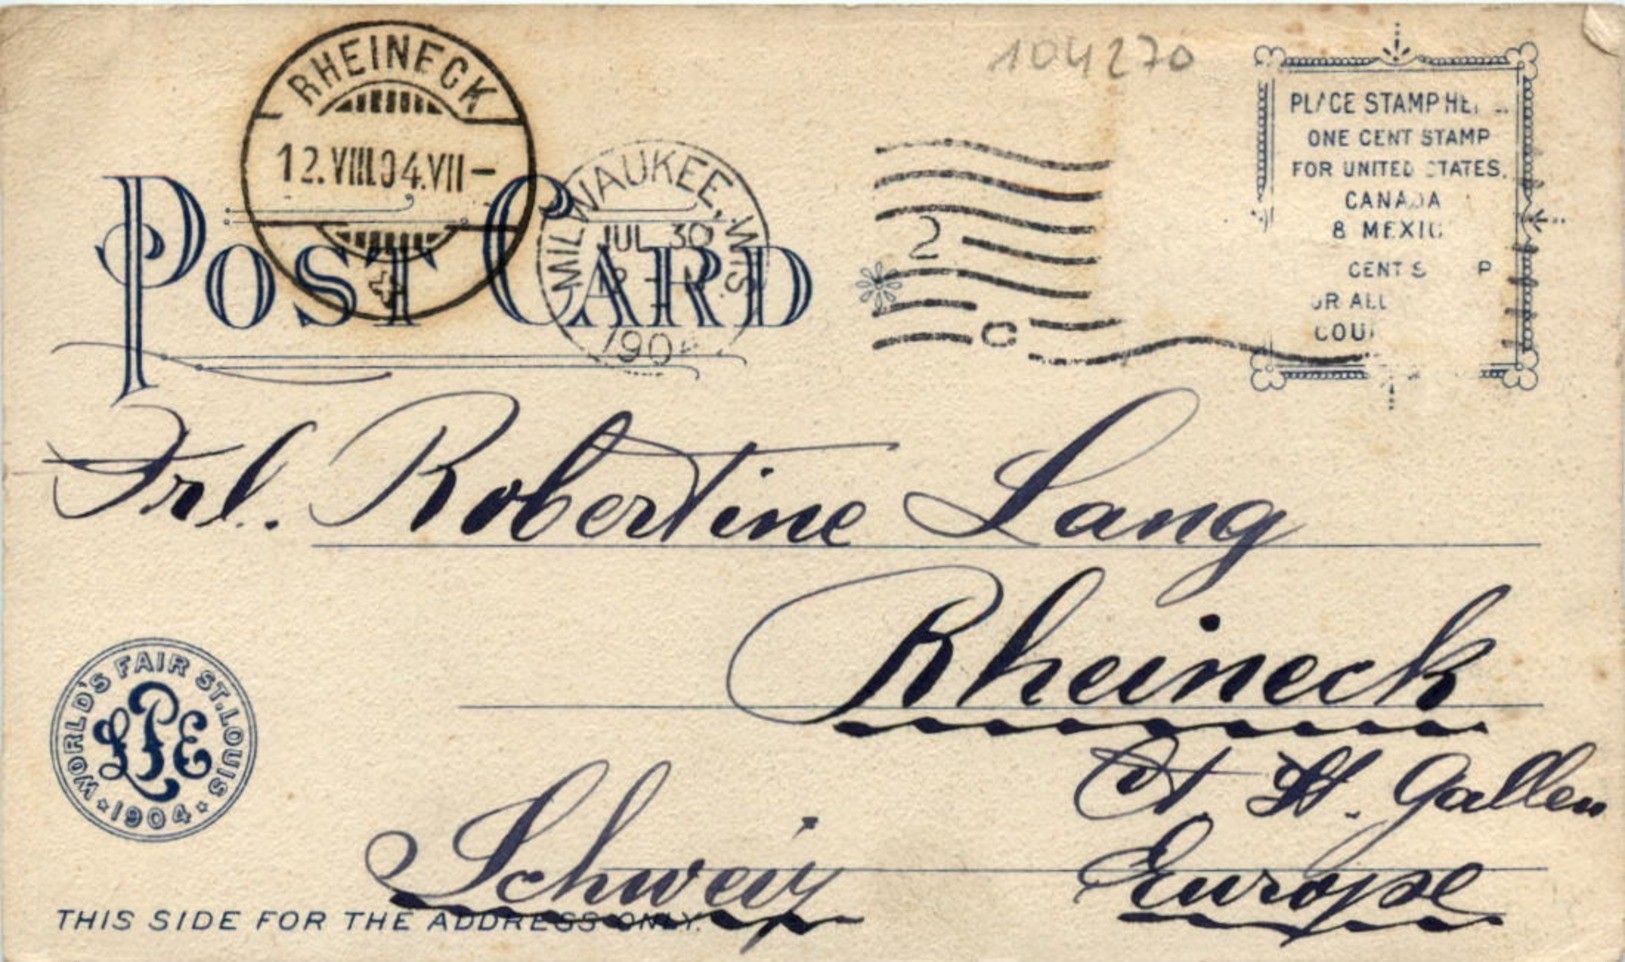 104270
RHEINECK
12.VIII.04.VII-
MILWAUKEE, WIS.
JUL 30
1904
2
C
POST CARD
PLACE STAMP HE
ONE CENT STAMP
FOR UNITED STATES,
CANADA
& MEXIC
CENT S P
OR ALL
COU
Frl. Robertine Lang
Rheineck
Ct St. Gallen
Schweiz Europe
WORLD'S FAIR ST. LOUIS
LPE
1904
THIS SIDE FOR THE ADDRESS ONLY.